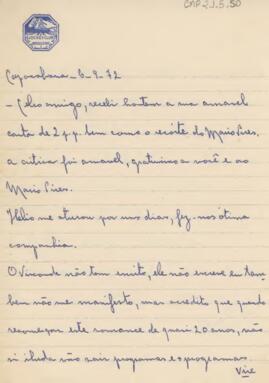 CMP2.1.5.50
Copacabana _ 6_9_72
_ Célio amigo, recebi hontem a sua amavel
carta de 2 p.p. bem como o recorte do Mario Pires.
a critica foi amavel, gratissimo a você e ao
Mario Pires.
Helio me aturou por uns dias, fez-nos ótima
companhia.
O Visconde não tem escrito, ele não escreve eu tam
bem não me manifesto, mas acredito que quando
recomeçar este romance de quasi 20 anos, não
si iluda vão sair programas e + programas.
Vire